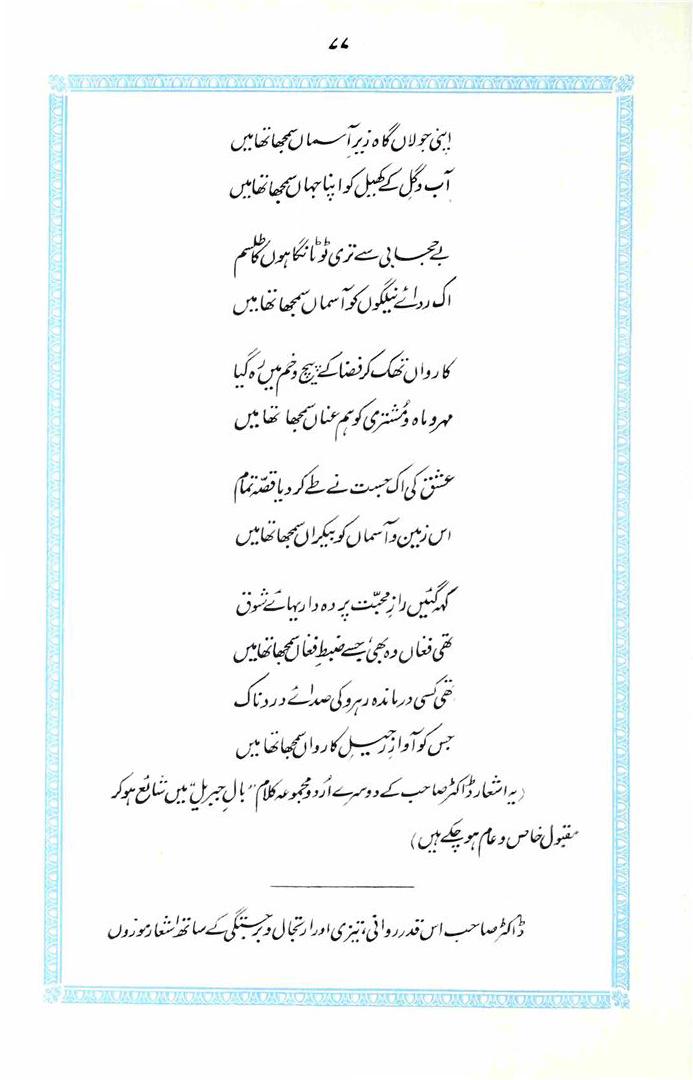 ۷۷
اپنی جولاں گاہ زیرِ آسماں سمجھا تھا میں
آب و گِل کے کھیل کو اپنا جہاں سمجھا تھا میں
بے حجابی سے تری ٹوٹا نگاہوں کا طلسم
اک ردائے نیلگوں کو آسماں سمجھا تھا میں
کارواں تھک کر فضا کے پیچ و خم میں رہ گیا
مہر و ماہ و مُشتری کو ہم عناں سمجھا تھا میں
عشق کی اک جست نے طے کر دیا قصّہ تمام
اس زمین و آسماں کو بیکراں سمجھا تھا میں
کہہ گئیں رازِ محبّت پردہ داریہائے شوق
تھی فغاں وہ بھی جسے ضبطِ فغاں سمجھا تھا میں
تھی کسی درماندہ رہرو کی صدائے دردناک
جس کو آوازِ رحیلِ کارواں سمجھا تھا میں
(یہ اشعار ڈاکٹر صاحب کے دوسرے اُردو مجموعہ کلام "بالِ جبریل" میں شائع ہو کر
مقبول خاص و عام ہو چکے ہیں)
ڈاکٹر صاحب اس قدر روانی، تیزی اور ارتجال و برجستگی کے ساتھ اشعار موزوں